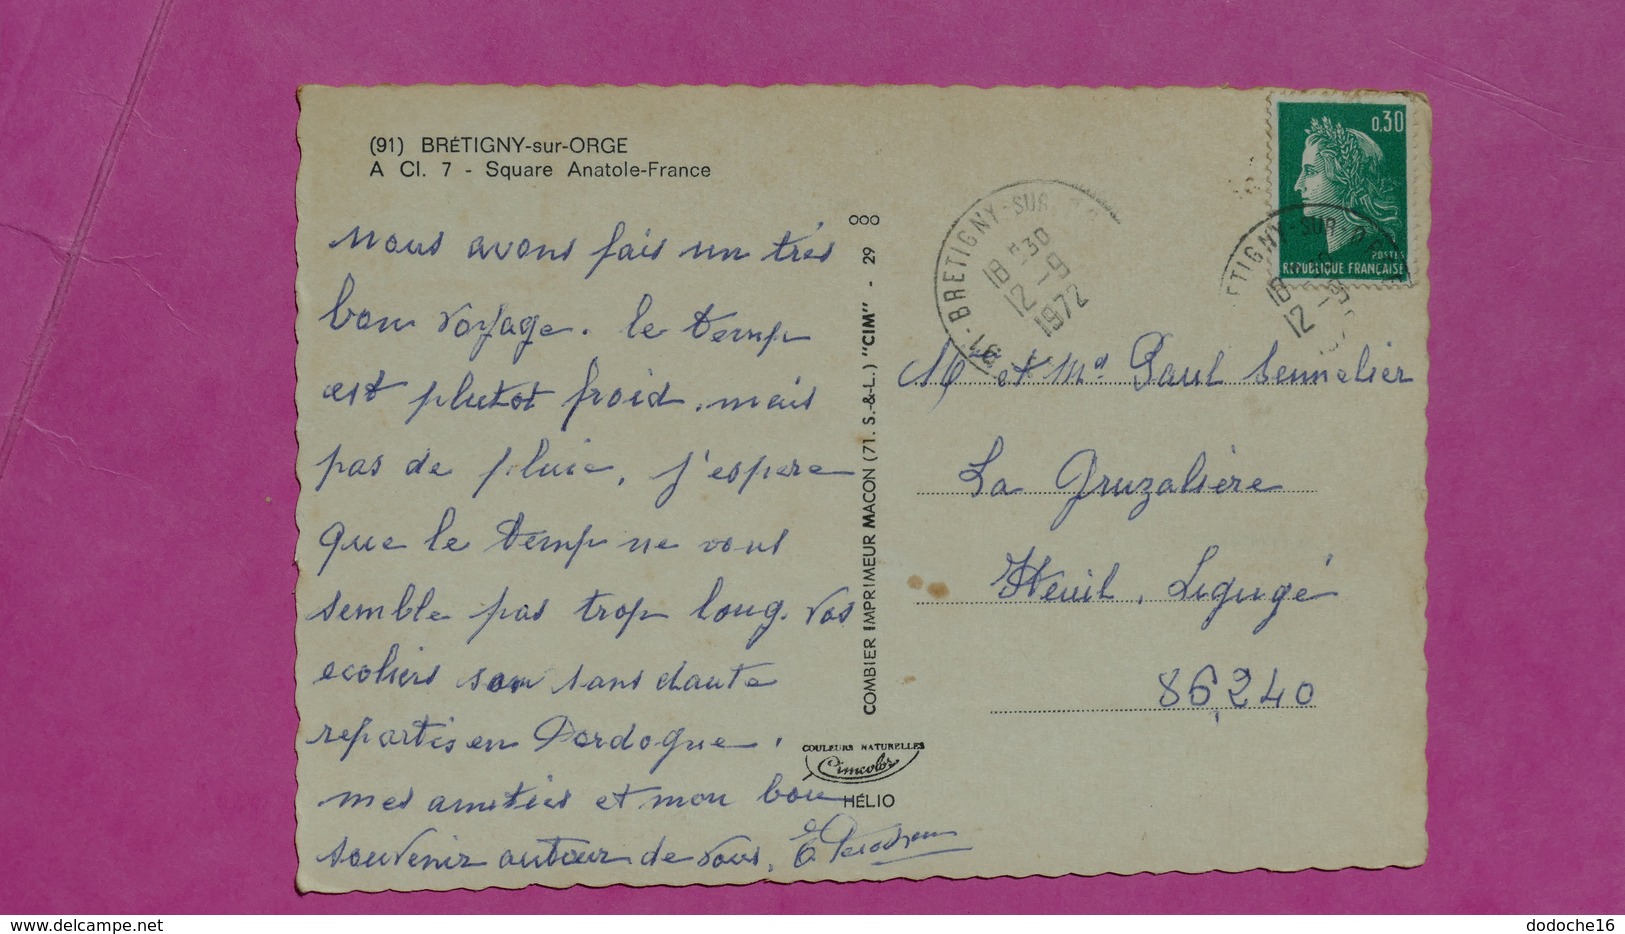 (91) BRÉTIGNY-sur-ORGE
A Cl. 7 - Square Anatole-France
Nous avons fais un très
bon voyage. le temp
est plutot froid. mais
pas de pluie, j'espere
que le temp ne vous
semble pas trop long. Vos
ecoliers son sans daute
repartis en Dordogne.
mes amitiés et mon bon
souvenir autour de vous.
COMBIER IMPRIMEUR MACON (71. S.-&-L.) "CIM" - 29 000
COULEURS NATURELLES
Cimcolor
HÉLIO
0,30
POSTES
RÉPUBLIQUE FRANÇAISE
91 - BRETIGNY-SUR
18 H 30
12 - 9
1972
ETIGNY-SUR
18
12 - 9
Mr et Md Paul Sennelier
La Gruzalière
Iteuil, Ligugé
86.240
dodoche16
www.delcampe.net